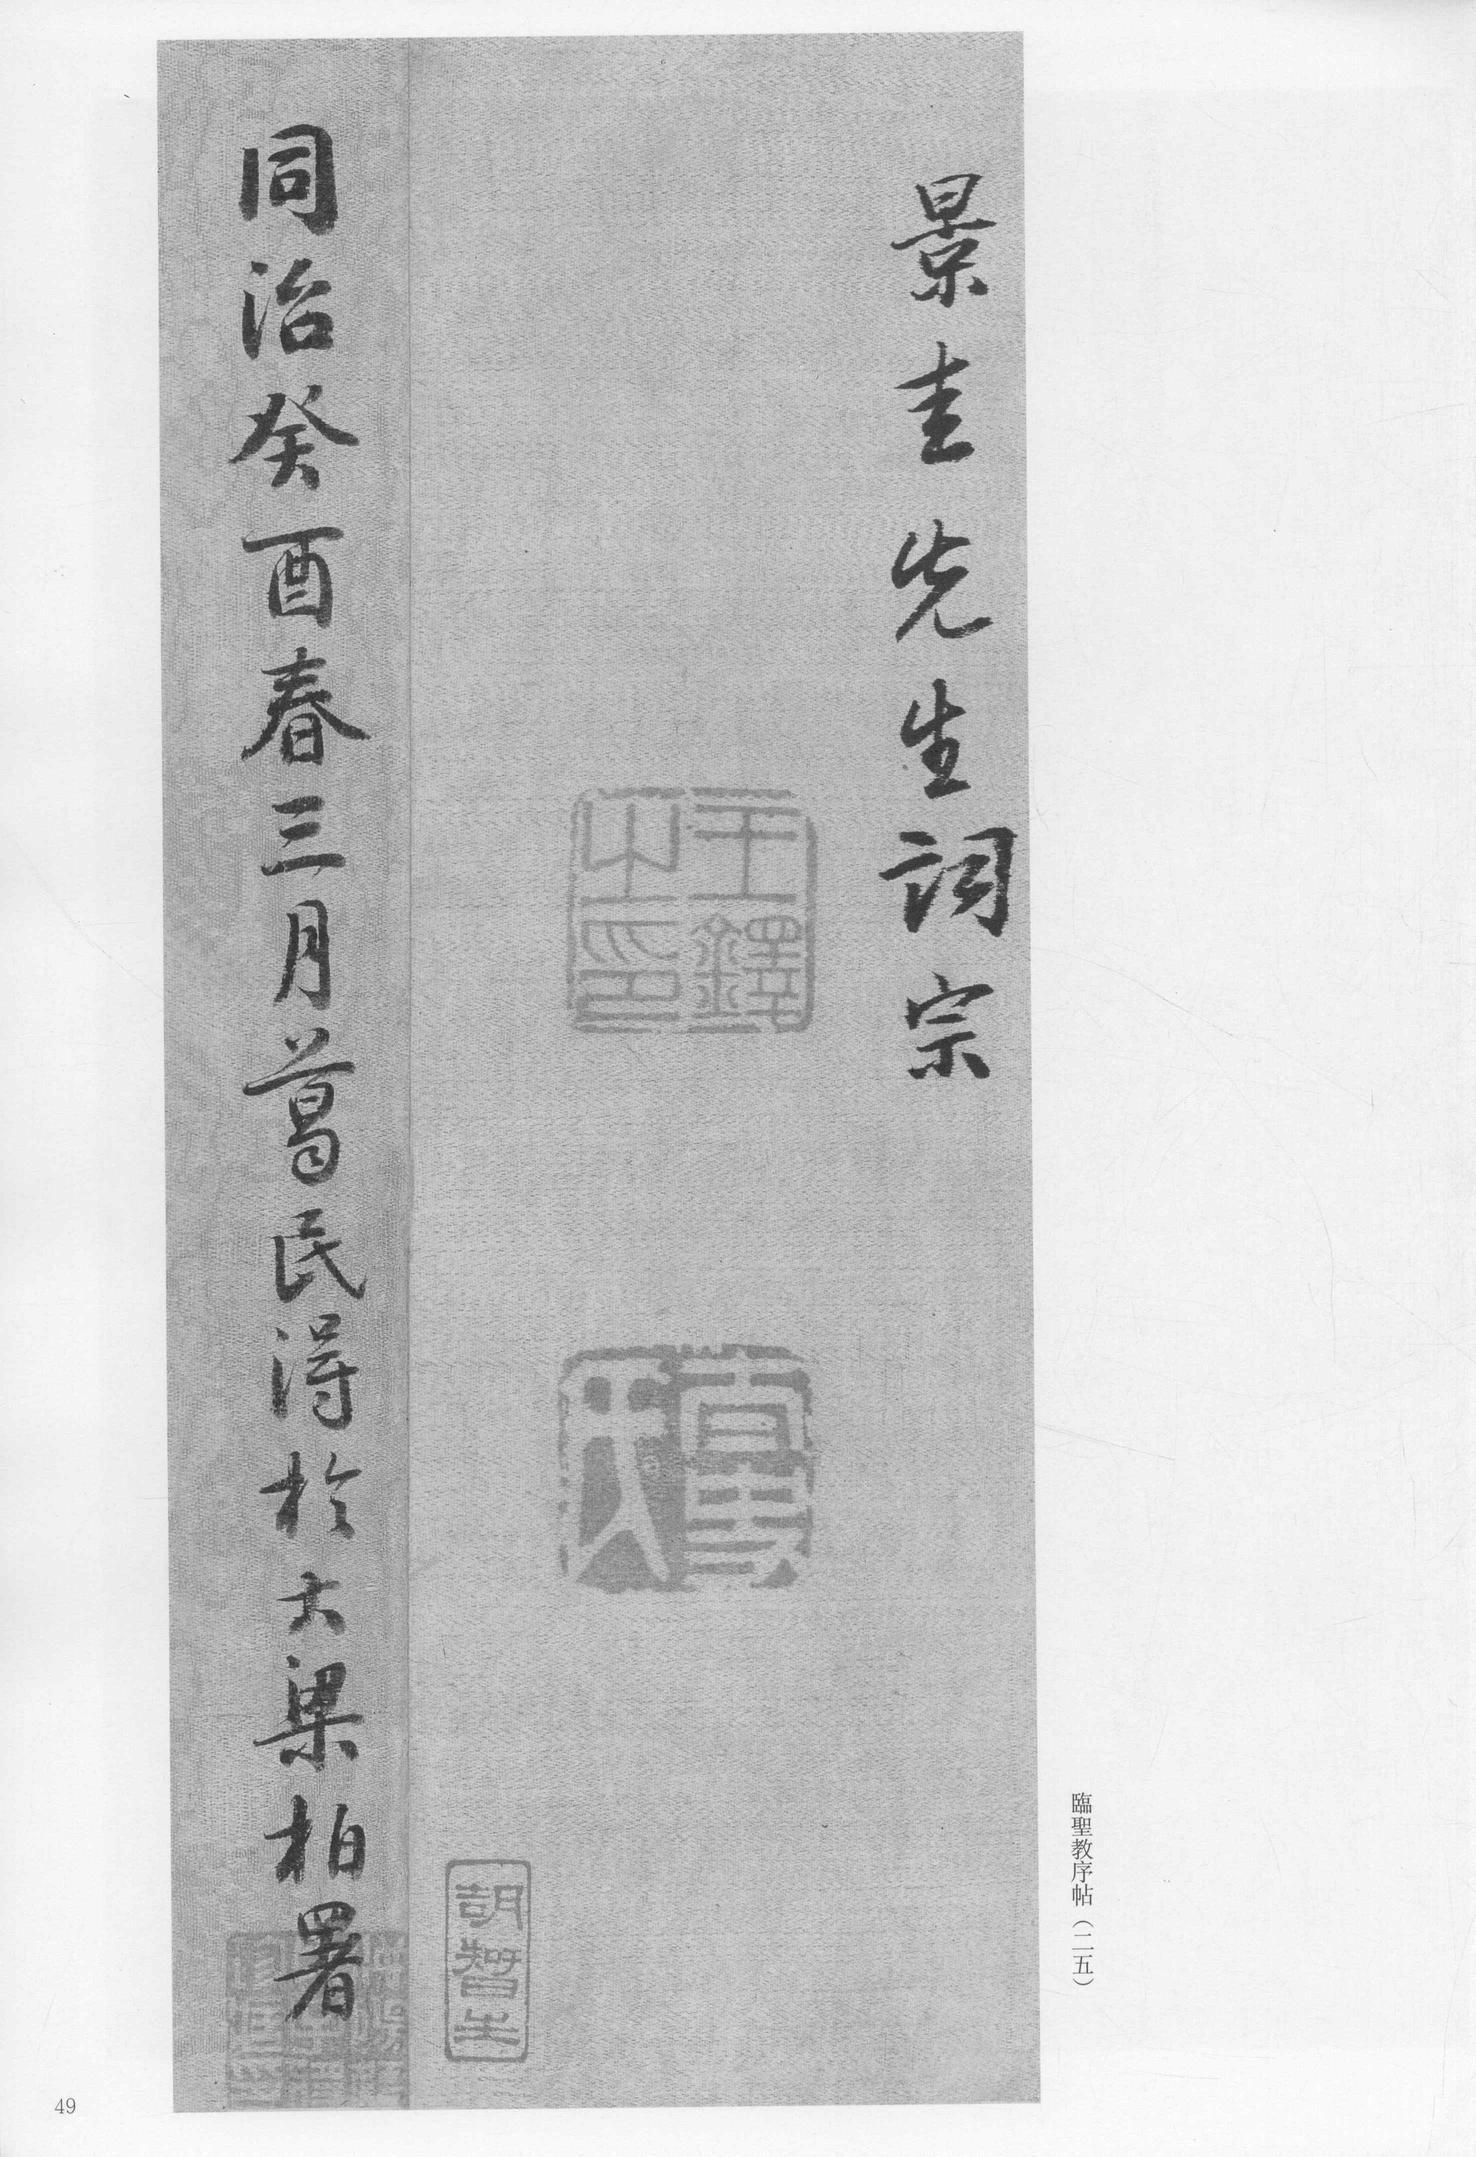 景圭先生詞宗
王鐸之印
胡智生
同治癸酉春三月蒿民得於大梁柏署
臨聖教序帖（二五）
49